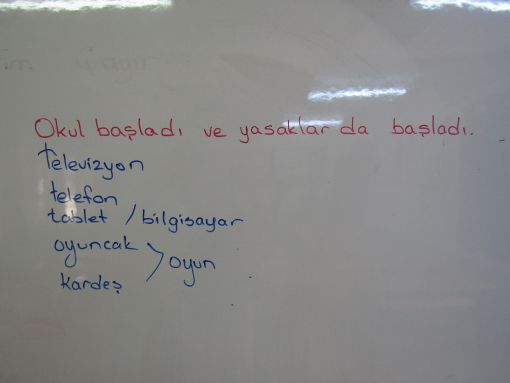 Okul başladı ve yasaklar da başladı.
Televizyon
telefon
tablet / bilgisayar
oyuncak
oyun
kardeş